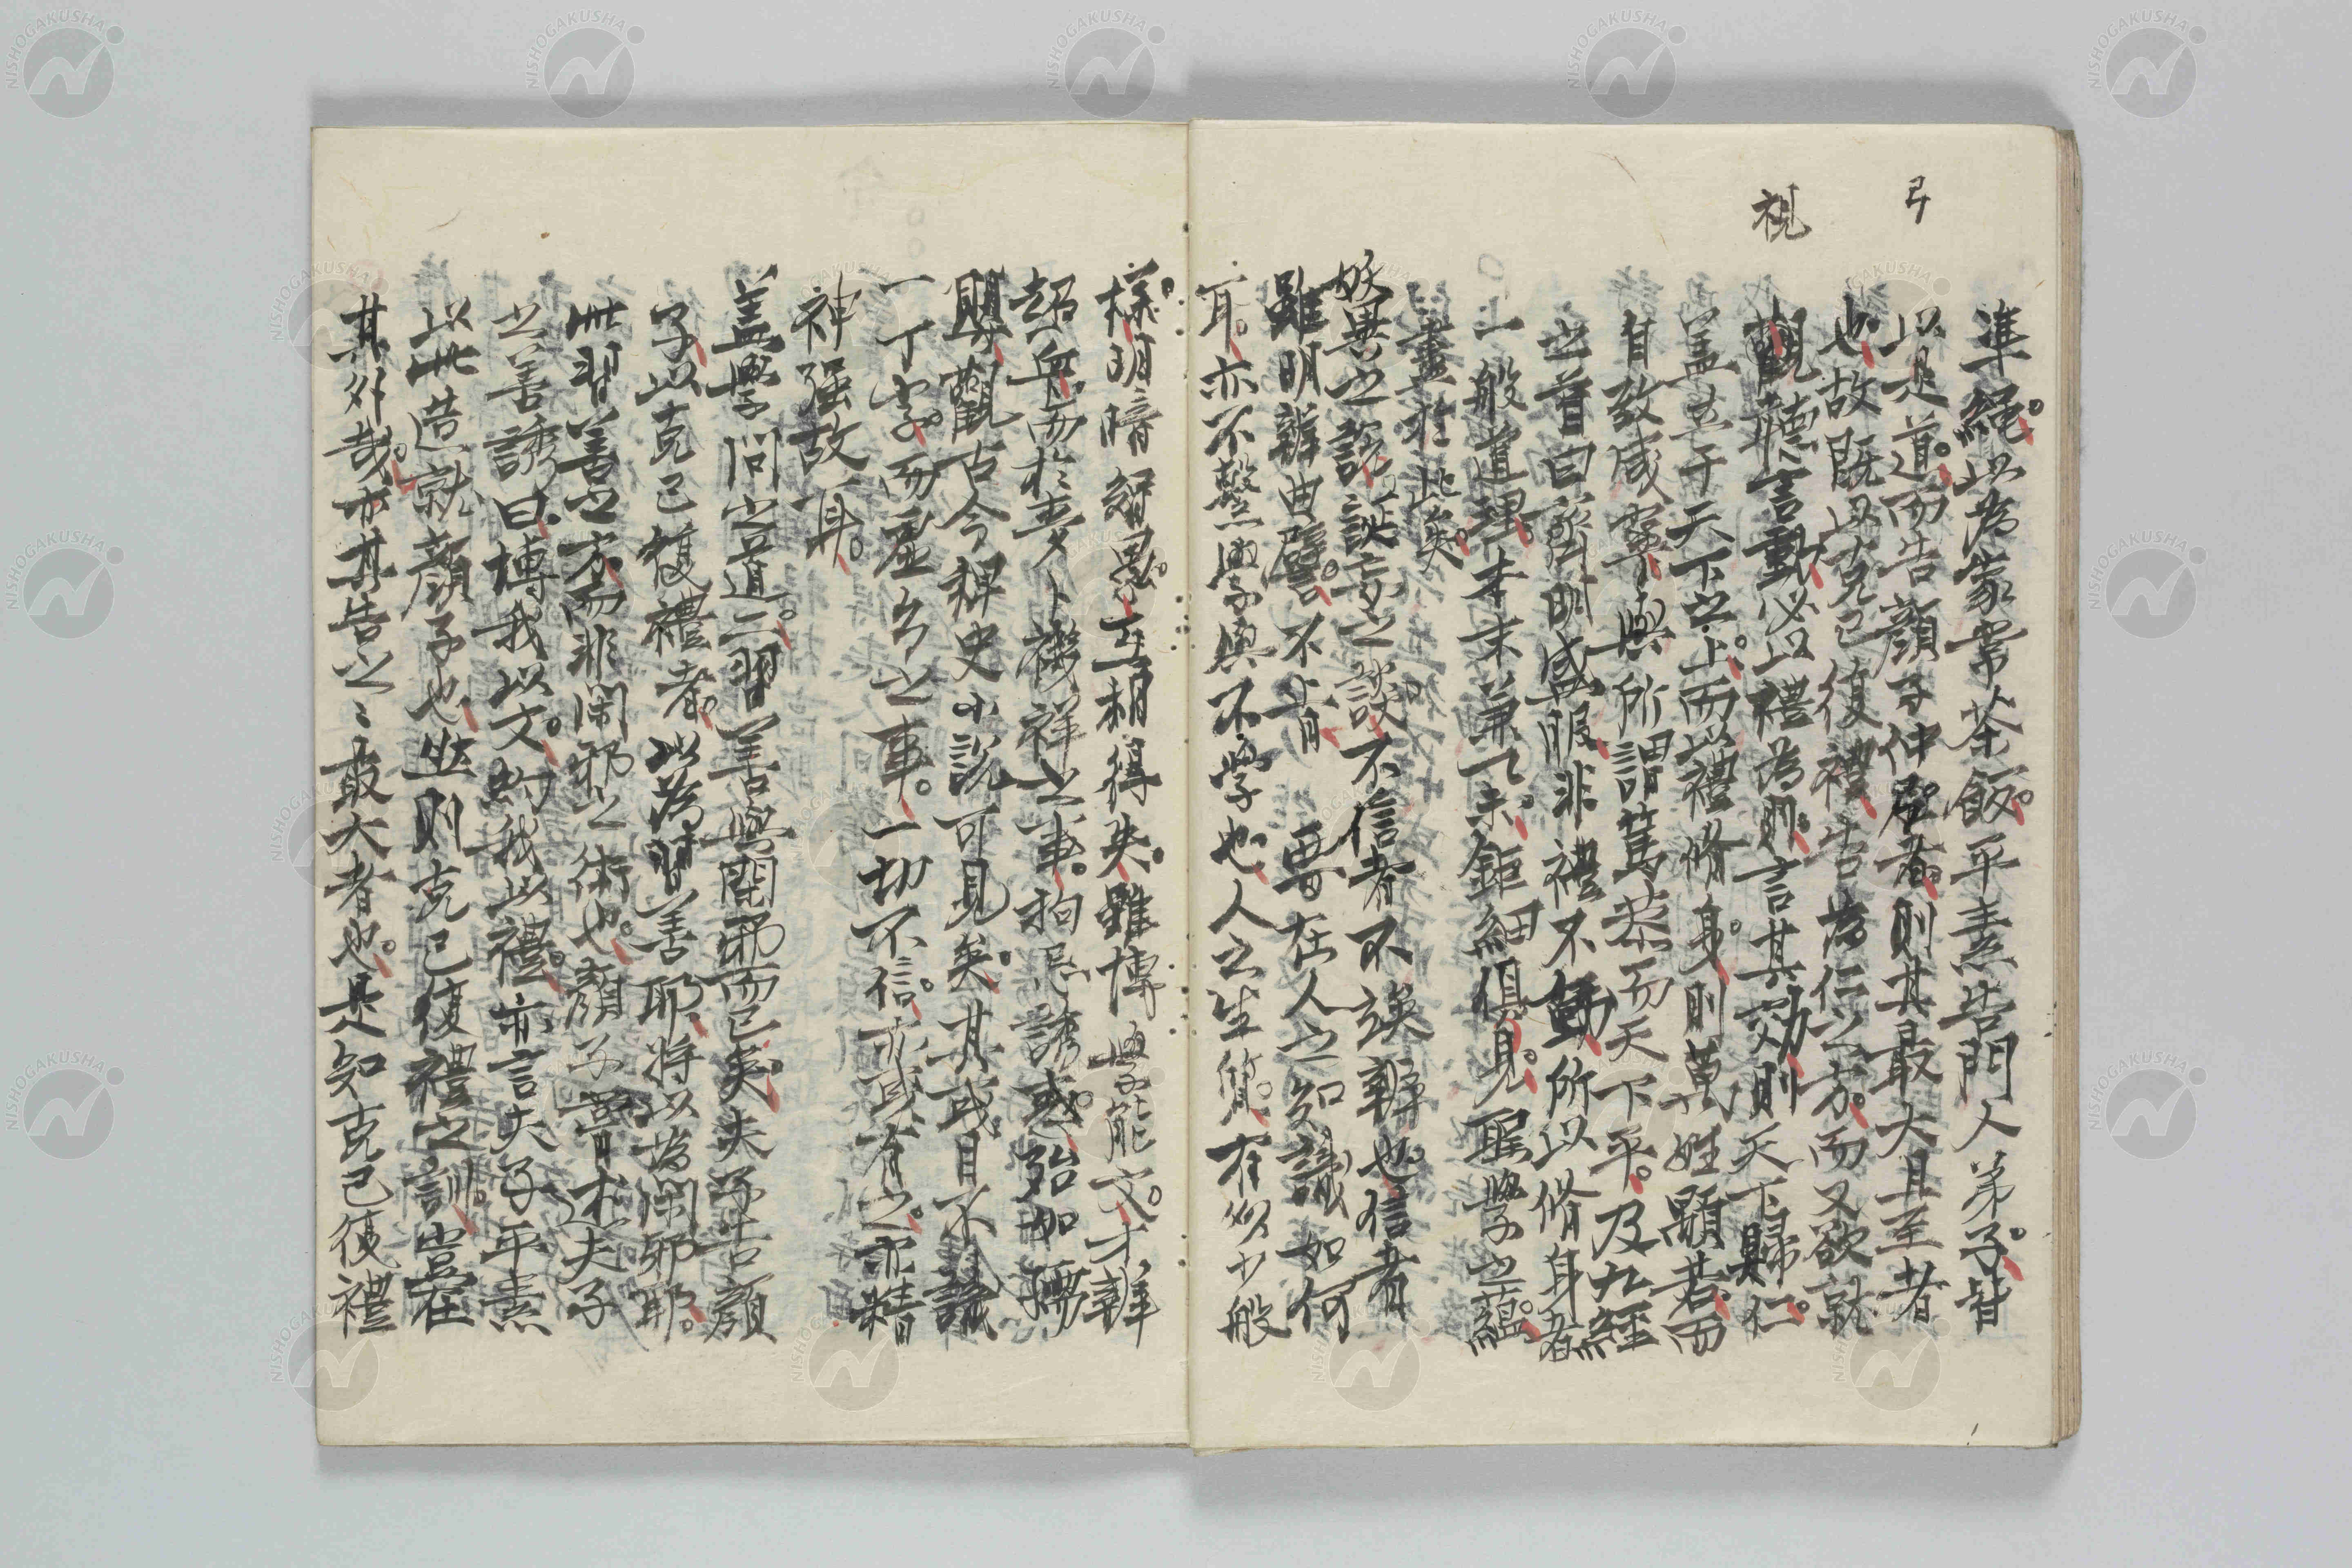 弓
視
準繩。以為家常茶飯。平素告門人弟子。皆
以是道。而告顏子仲弓者。則其最大且至者
也。故既以克己復禮。告為仁之方。而又欲就
觀聽言動。必以禮為則。言其効則天下歸仁。
盖立于天下之上。而以禮脩身。則萬姓顒若。而
自致咸寧。與所謂篤恭而天下平。及九經
之首曰齊明盛服非禮不動所以脩身者
一般道理。本末兼了。鉅細俱見。聖學之蘊。
盡於此矣。
妖異之説。誕妄之談。不信者不竢辨也。信者
雖明辨曲譬。不肯。要在人之知識如何
耳。亦不繫學與不學也。人之生質。有多少般
樣。明暗智愚。互相得失。雖博學能文。才辨
超众。而於夢卜禨祥之事。拘忌誘惑。殆如孺
嬰。觀古今稗史小說可見矣。其或目不識
一丁字。而虛幻之事。一切不信。亦或有之。亦精
神强故耳。
盖學問之道。二習善與閑邪而已矣。夫子告顏
子以克己復禮者。以為習善耶。將以為閑邪耶。
無習善之方。而非閑邪之術也。顏子嘗述夫子
之善誘曰。博我以文。約我以禮。亦言夫子平素
以此造就顏子也。然則克己復禮之訓。豈在
其外哉。亦其告之之最大者也。是知克己復禮
NISHOGAKUSHA